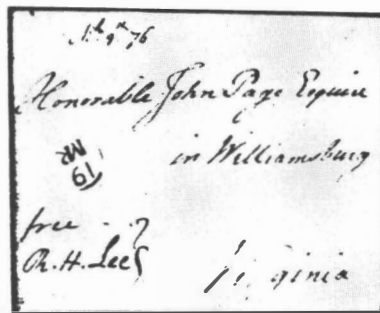 76
Honorable John Page Esquire
in Williamsburg
19
MR
free
R. H. Lee
Virginia